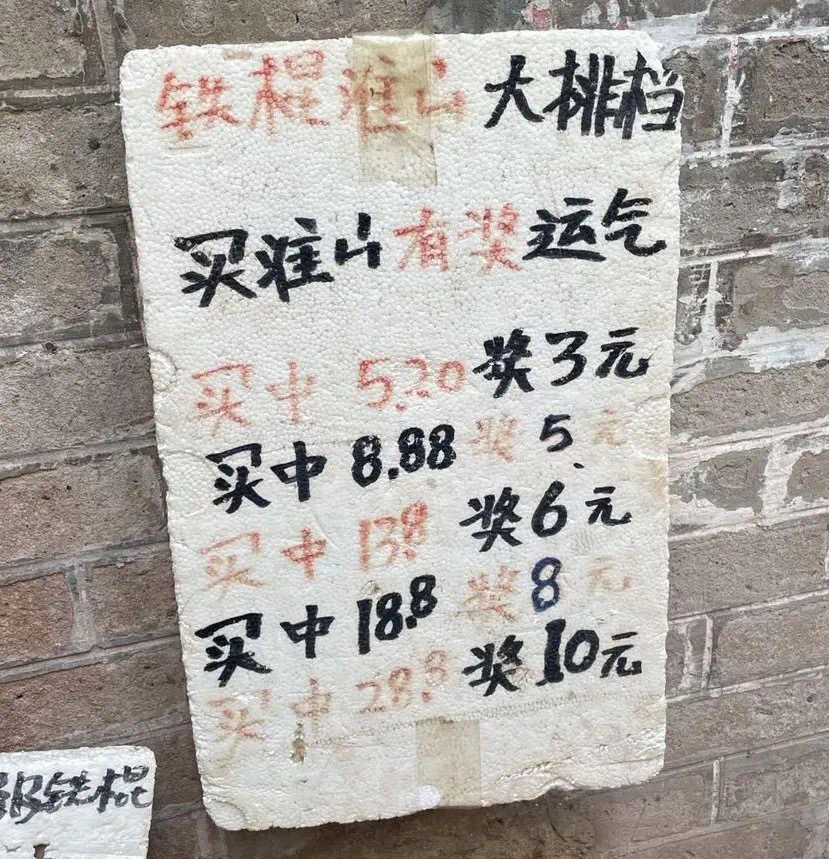 铁棍淮山大排档
买淮山有奖运气
买中 5.20 奖3元
买中 8.88 奖5元
买中 13.8 奖6元
买中 18.8 奖8元
买中 28.8 奖10元
铁棍